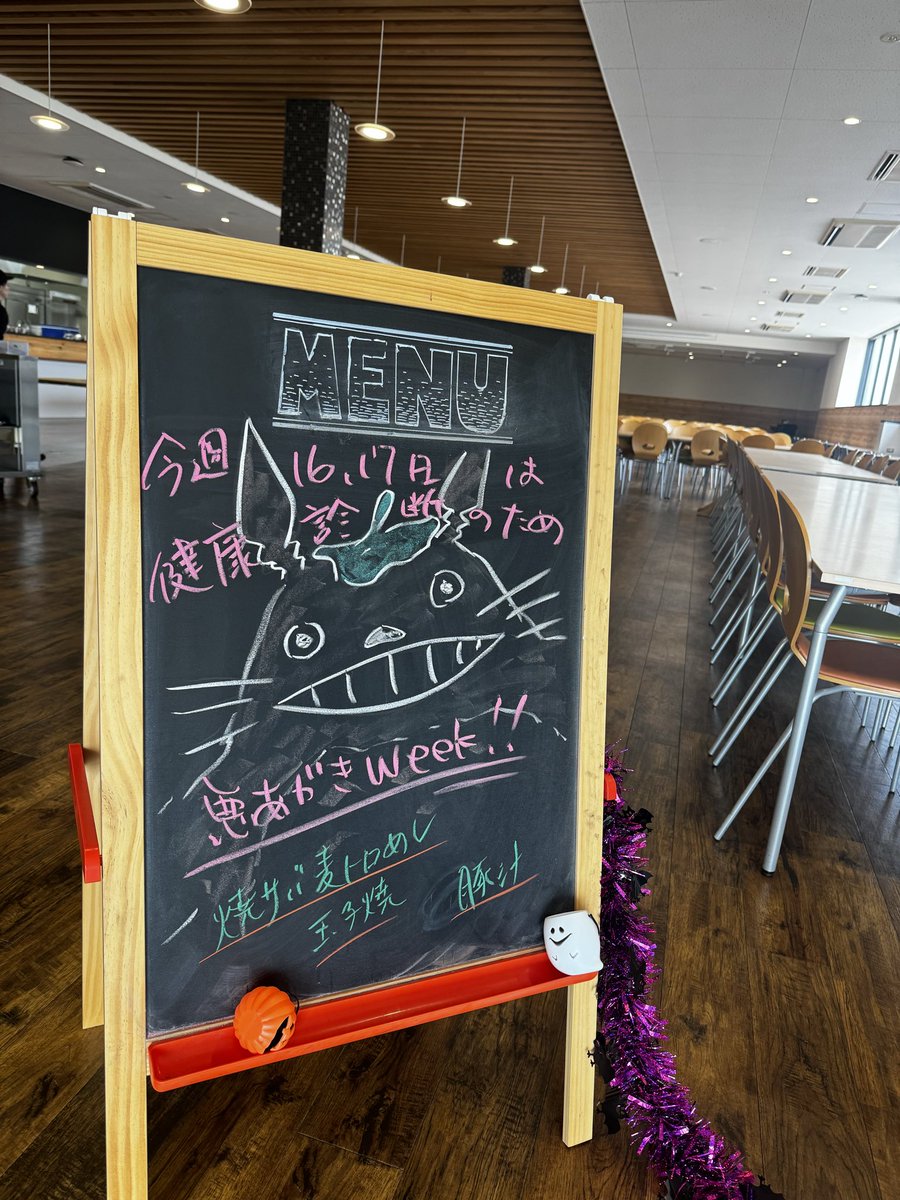 MENU
今週 16、17日は
健康診断のため
悪あがきweek!!
焼サバ麦トロめし
玉子焼
豚汁